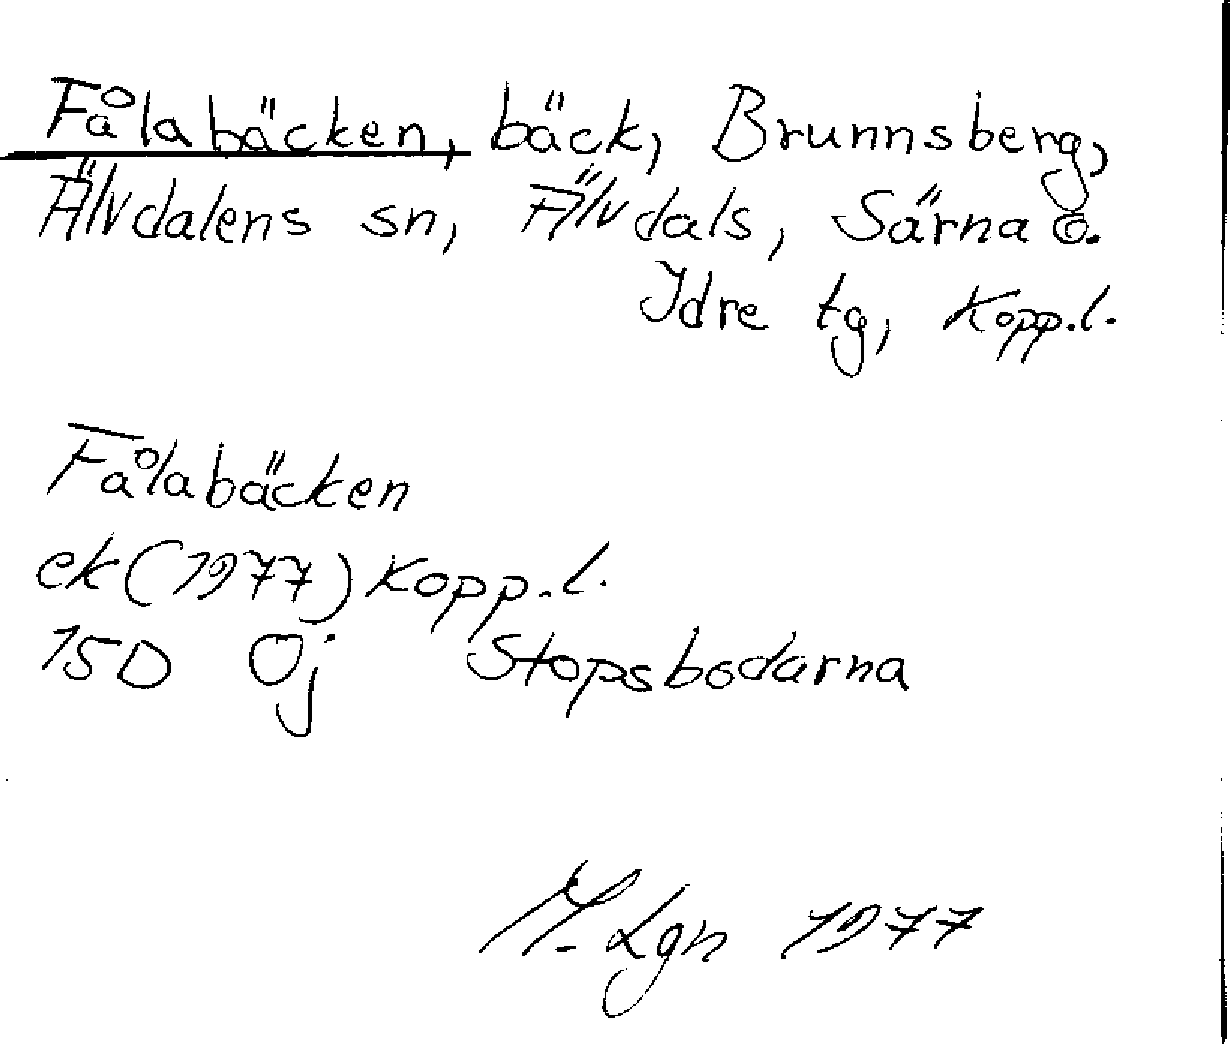 Fålabäcken, bäck, Brunnsberg,
Älvdalens sn, Älvdals, Särna o.
Idre tg, Kopp.l.
Fålabäcken
ek (1977) Kopp.l.
15D 0j Stopsbodarna
M. Lgn 1977